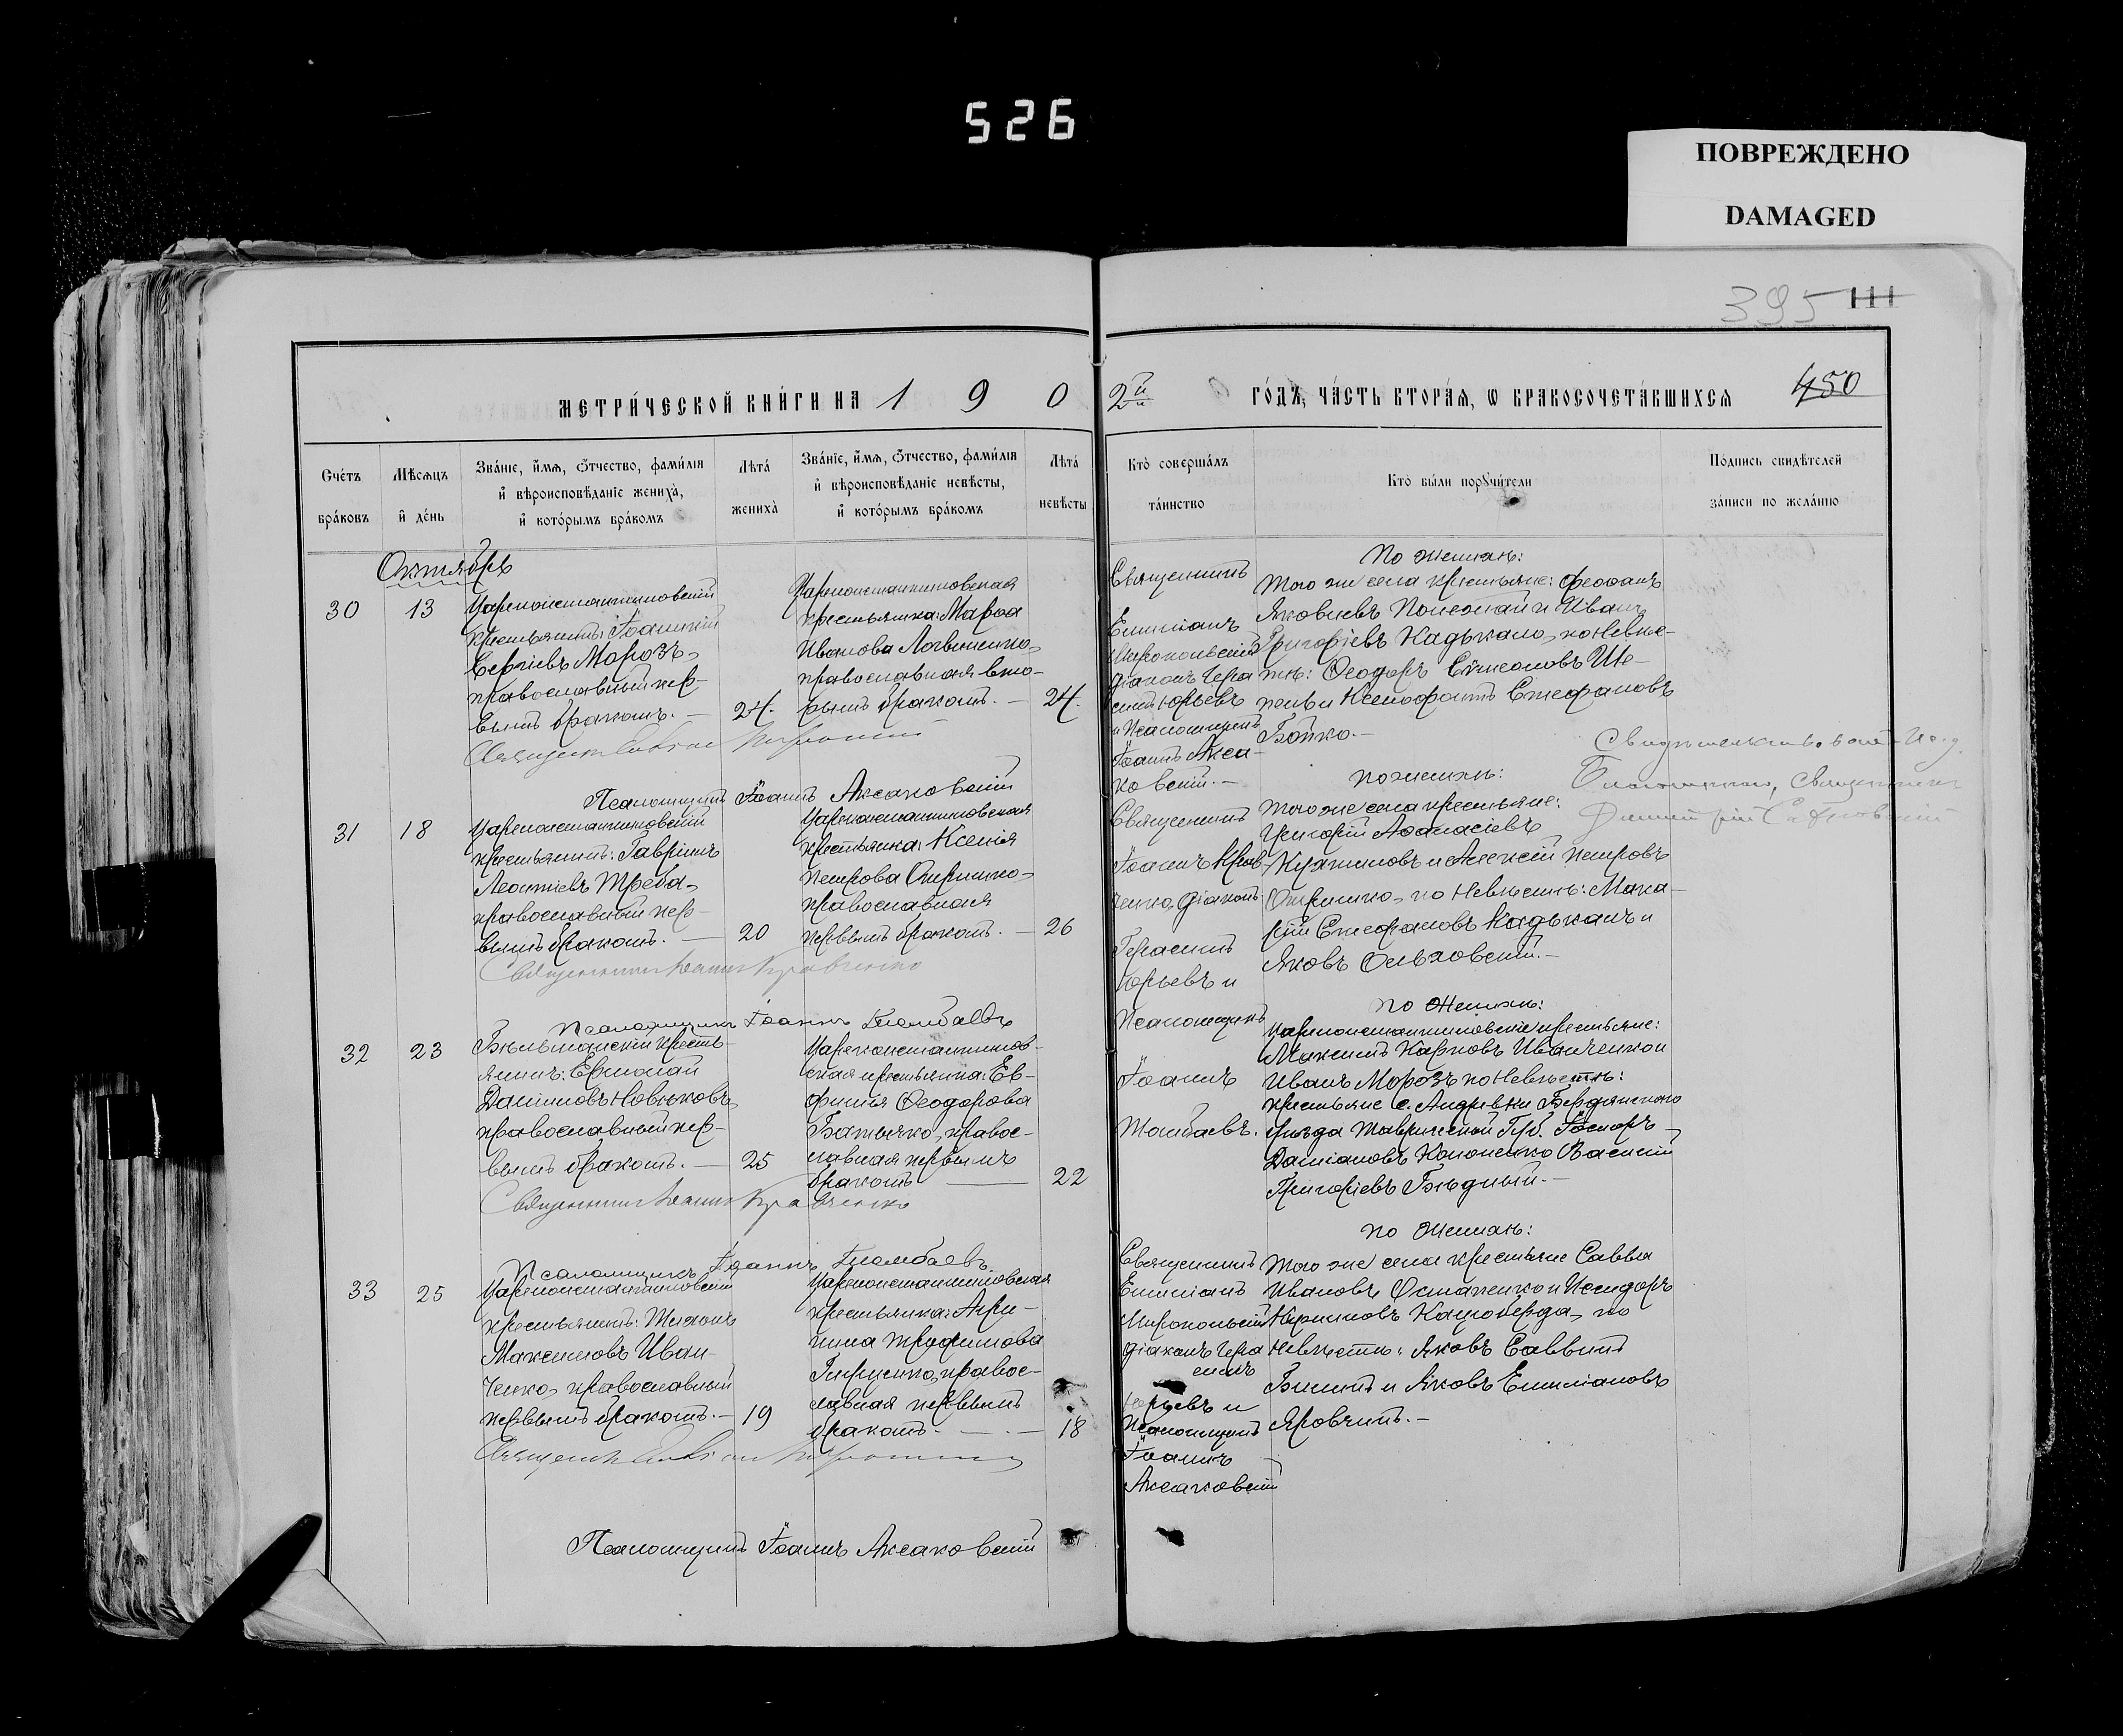 526
ПОВРЕЖДЕНО
DAMAGED
395 111
МЕТРИ́ЧЕСКОЙ КНИ́ГИ НА 1 9 0 2й ГО́ДЪ, ЧА́СТЬ ВТОРА́Я, Ѡ БРАКОСОЧЕТА́ВШИХСЯ
450
Сче́тъ бра́ковъ
Мѣ́сяцъ и҆ де́нь
Зва́нїе, и҆́мя, ѻ҆́тчество, фами́лїя
и҆ вѣроисповѣ́данїе жениха̀,
и҆ кото́рымъ бра́комъ
Лѣта̀ жениха̀
Зва́нїе, и҆́мя, ѻ҆́тчество, фами́лїя
и҆ вѣроисповѣ́данїе невѣ́сты,
и҆ кото́рымъ бра́комъ
Лѣта̀ невѣ́сты
Кто̀ соверша́лъ
та́инство
Кто̀ бы́ли порꙋчи́тели
По́дпись свидѣ́телей
за́писи по жела́нїю
Октябрь
30
13
Цареконстантиновскій
крестьянинъ: Іоанникій
Сергіевъ Морозъ,
православный пер-
вымъ бракомъ. —
24.
Цареконстантиновская
крестьянка: Марѳа
Иванова Логвиненко,
православная вто-
рымъ бракомъ. —
24.
Священникъ
Емиліанъ
діаконъ Гера
симъ Юрьевъ
и Псаломщикъ
Іоаннъ Акса-
ковскій. —
По женихѣ:
того же села крестьяне: Ѳеофанъ
Яковлевъ и Иванъ
Григорьевъ Кадькало, по Невѣс-
тѣ: Ѳеодоръ Симеоновъ Ше-
и Ксенофонтъ Стефановъ
Бойко. —
Священникъ
Псаломщикъ Іоаннъ Аксаковскій
31
18
Цареконстантиновскій
крестьянинъ: Гавріилъ
Леонтіевъ Треба,
православный пер-
вымъ бракомъ. —
20
Цареконстантиновская
крестьянка: Ксенія
Петрова Опришко,
православная
первымъ бракомъ. —
26
Священникъ
Іоаннъ Крав-
ченко, діаконъ
Герасимъ
Юрьевъ и
Псаломщикъ
Іоаннъ
Тломбаевъ.
по женихѣ:
того же села крестьяне:
Григорій Аѳанасіевъ
и Алексій Петровъ
Опришко, по Невѣстѣ: Мака-
рій Стефановъ Кадькалъ и
Яковъ Ольховскій. —
Священникъ Іоаннъ Кравченко
Псаломщикъ Іоаннъ Тломбаевъ
Священникъ
32
23
Бѣльманскій кресть-
янинъ: Ермолай
Даниловъ Новиковъ,
православный пер-
вымъ бракомъ. —
25
Цареконстантинов-
ская крестьянка: Ев-
фимія Ѳеодорова
Батычко, правос-
лавная первымъ
бракомъ —
22
По женихѣ:
Цареконстантиновскіе крестьяне:
Максимъ Карповъ Иванченко и
Иванъ Морозъ по Невѣстѣ:
крестьяне с. Андрѣвки Бердянскаго
уѣзда Таврической Губ.
Даміановъ Кононенко Василій
Григоріевъ Бѣдный. —
Священникъ Іоаннъ Кравченко
Псаломщикъ Іоаннъ Тломбаевъ
33
25
Цареконстантиновскій
крестьянинъ: Тихонъ
Максимовъ Иван-
ченко, православный
первымъ бракомъ. —
19
Цареконстантиновская
крестьянка: Агри-
пина Трофимова
правос-
лавная первымъ
бракомъ. — . —
18
Священникъ
Емиліанъ
діаконъ Гера
симъ
Юрьевъ и
Псаломщикъ
Іоаннъ
Аксаковскій
По женихѣ:
того же села крестьяне Савва
Ивановъ Остапенко и Исидоръ
Кириловъ по
Невѣстѣ: Яковъ Саввинъ
и Яковъ Емиліановъ
Яровчинъ. —
Псаломщикъ Іоаннъ Аксаковскій